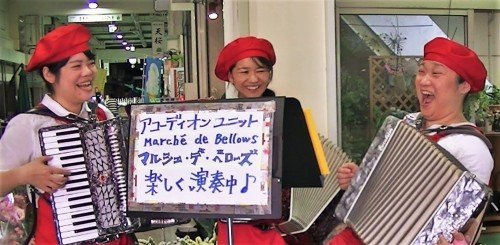 アコーディオンユニット
Marché de Bellows
マルシェ・デ・ベローズ
楽しく演奏中♪